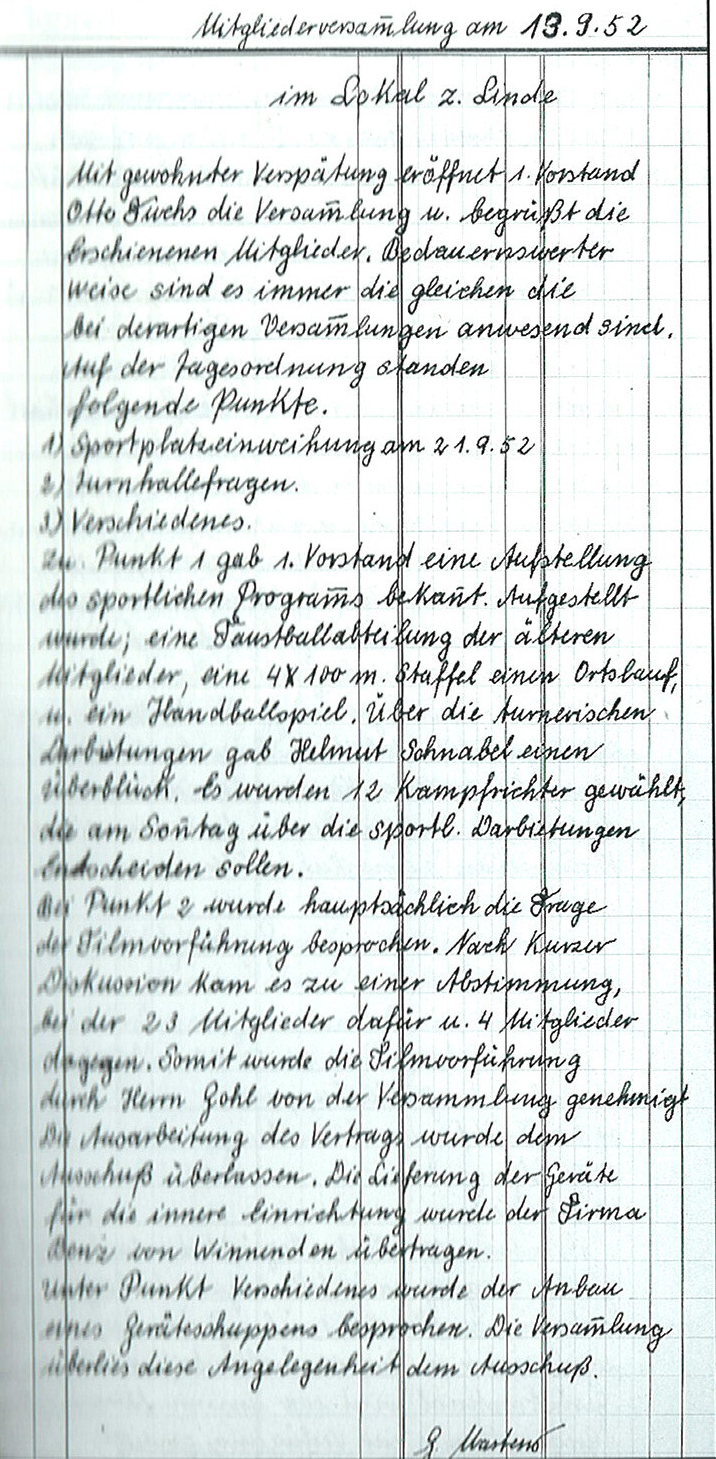 Mitgliederversam̄lung am 13.9.52
im Lokal z. Linde
Mit gewohnter Verspätung eröffnet 1. Vorstand
Otto Fuchs die Versam̄lung u. begrüßt die
Erschienenen Mitglieder. Bedauernswerter
weise sind es immer die gleichen die
bei derartigen Versam̄lungen anwesend sind.
Auf der Tagesordnung standen
folgende Punkte.
1) Sportplatzeinweihung am 21.9.52
2) Turnhallefragen.
3) Verschiedenes.
Zu Punkt 1 gab 1. Vorstand eine Aufstellung
des sportlichen Program̄s bekan̄t. Aufgestellt
wurde; eine Faustballabteilung der älteren
Mitglieder, eine 4X100 m. Staffel einen Ortslauf,
u. ein Handballspiel. Über die turnerischen
Darbietungen gab Helmut Schnabel einen
überblick. Es wurden 12 Kampfrichter gewählt,
die am Son̄tag über die sportl. Darbietungen
Entscheiden sollen.
Bei Punkt 2 wurde hauptsächlich die Frage
der Filmvorführung besprochen. Nach Kurzer
Diskussion kam es zu einer Abstimmung,
bei der 23 Mitglieder dafür u. 4 Mitglieder
dagegen. Somit wurde die Filmvorführung
durch Herrn Gohl von der Versammlung genehmigt
Die Ausarbeitung des Vertrags wurde dem
Ausschuß überlassen. Die Lieferung der Geräte
für die innere Einrichtung wurde der Firma
Benz von Winnenden übertragen.
Unter Punkt Verschiedenes wurde der Anbau
eines Geräteschuppens besprochen. Die Versam̄lung
überlies diese Angelegenheit dem Ausschuß.
G. Martens